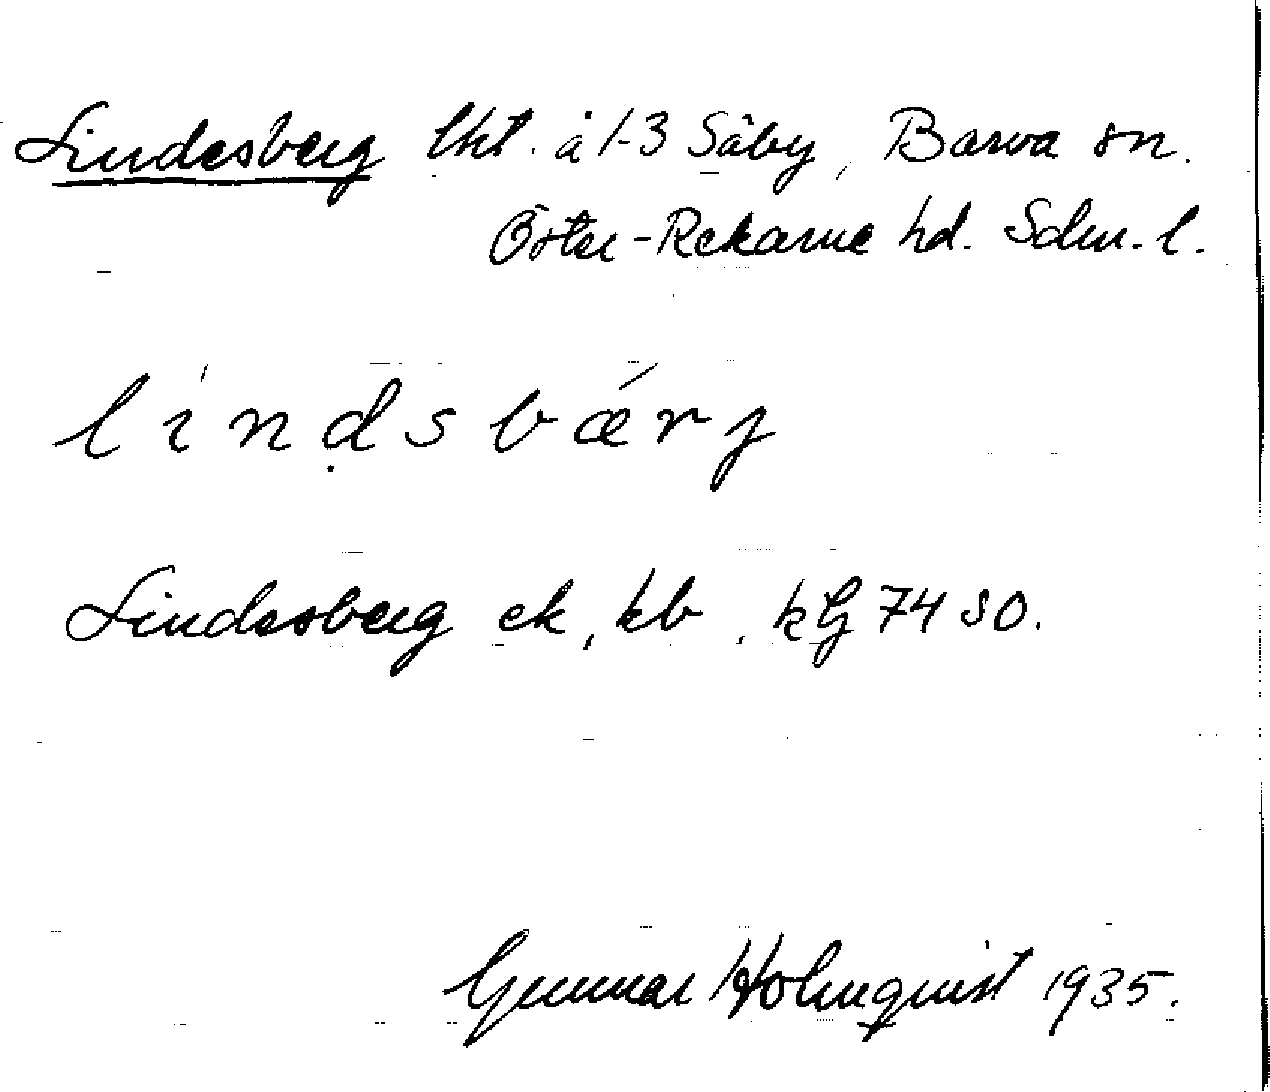 Lindesberg lht. å 1-3 Säby, Barva sn.
Öster-Rekarne hd. Sdm. l.
lindsbærj
Lindesberg ek, kb, kG 74 SO.
Gunnar Holmquist 1935.